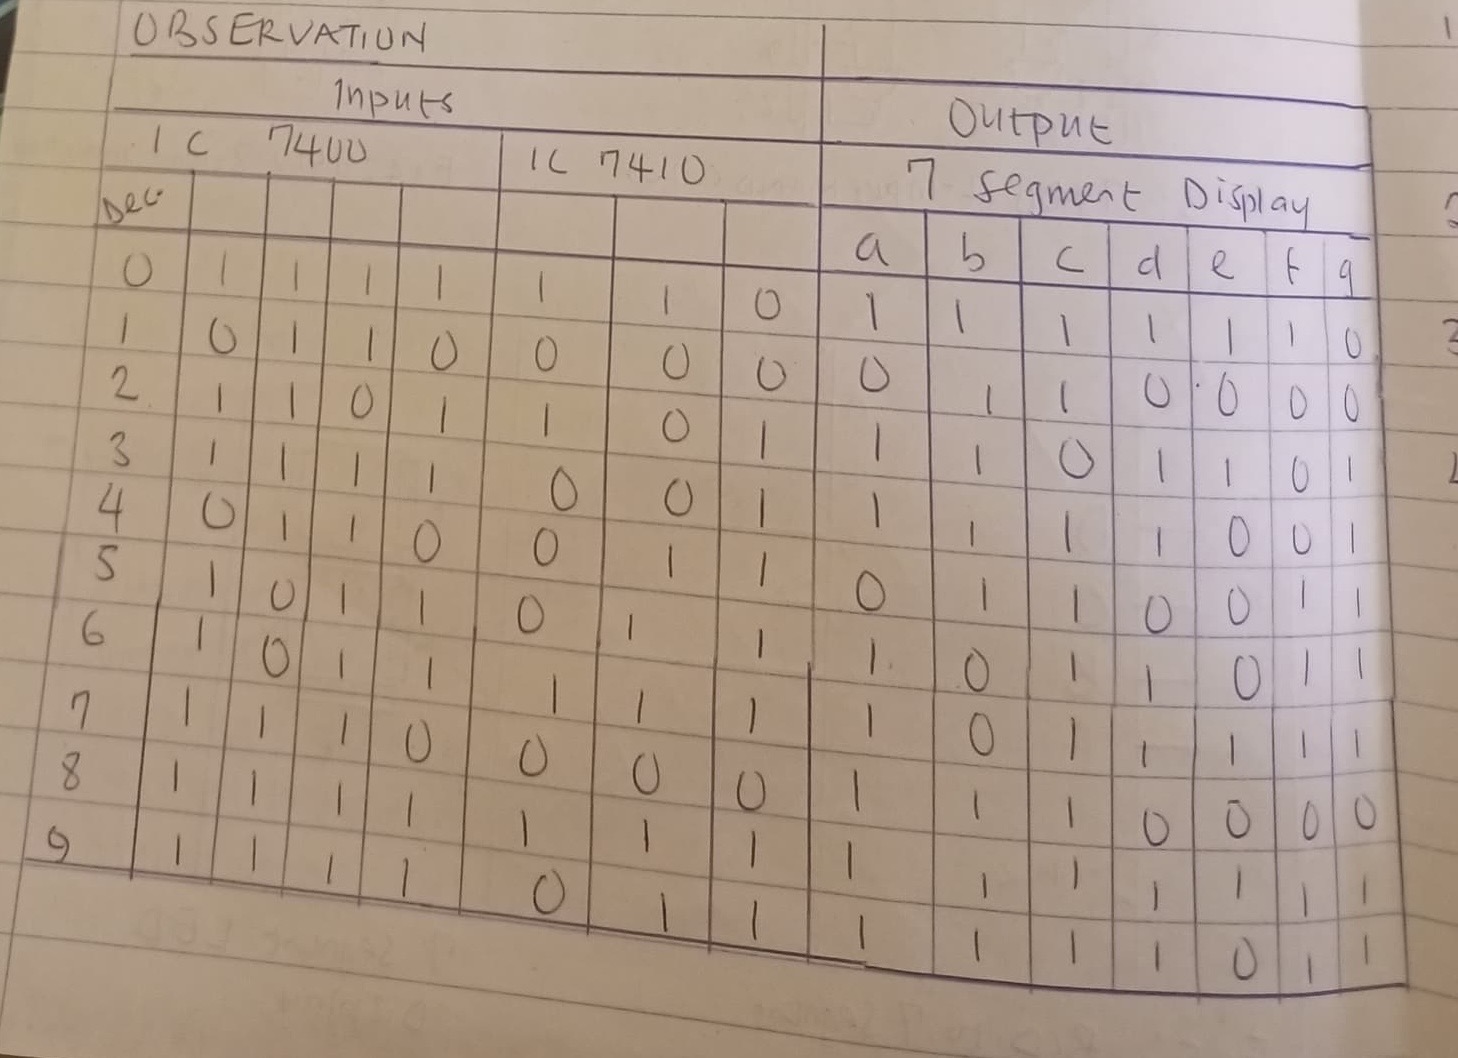 OBSERVATION
Inputs Output
IC 7400 IC 7410 7 Segment Display
Dec a b c d e f g
0 1 1 1 1 1 1 0 1 1 1 1 1 1 0
1 0 1 1 0 0 0 0 0 1 1 0 0 0 0
2 1 1 0 1 1 0 1 1 1 0 1 1 0 1
3 1 1 1 1 0 0 1 1 1 1 1 0 0 1
4 0 1 1 0 0 1 1 0 1 1 0 0 1 1
5 1 0 1 1 0 1 1 1 0 1 1 0 1 1
6 1 0 1 1 1 1 1 1 0 1 1 1 1 1
7 1 1 1 0 0 0 0 1 1 1 0 0 0 0
8 1 1 1 1 1 1 1 1 1 1 1 1 1 1
9 1 1 1 1 0 1 1 1 1 1 1 0 1 1